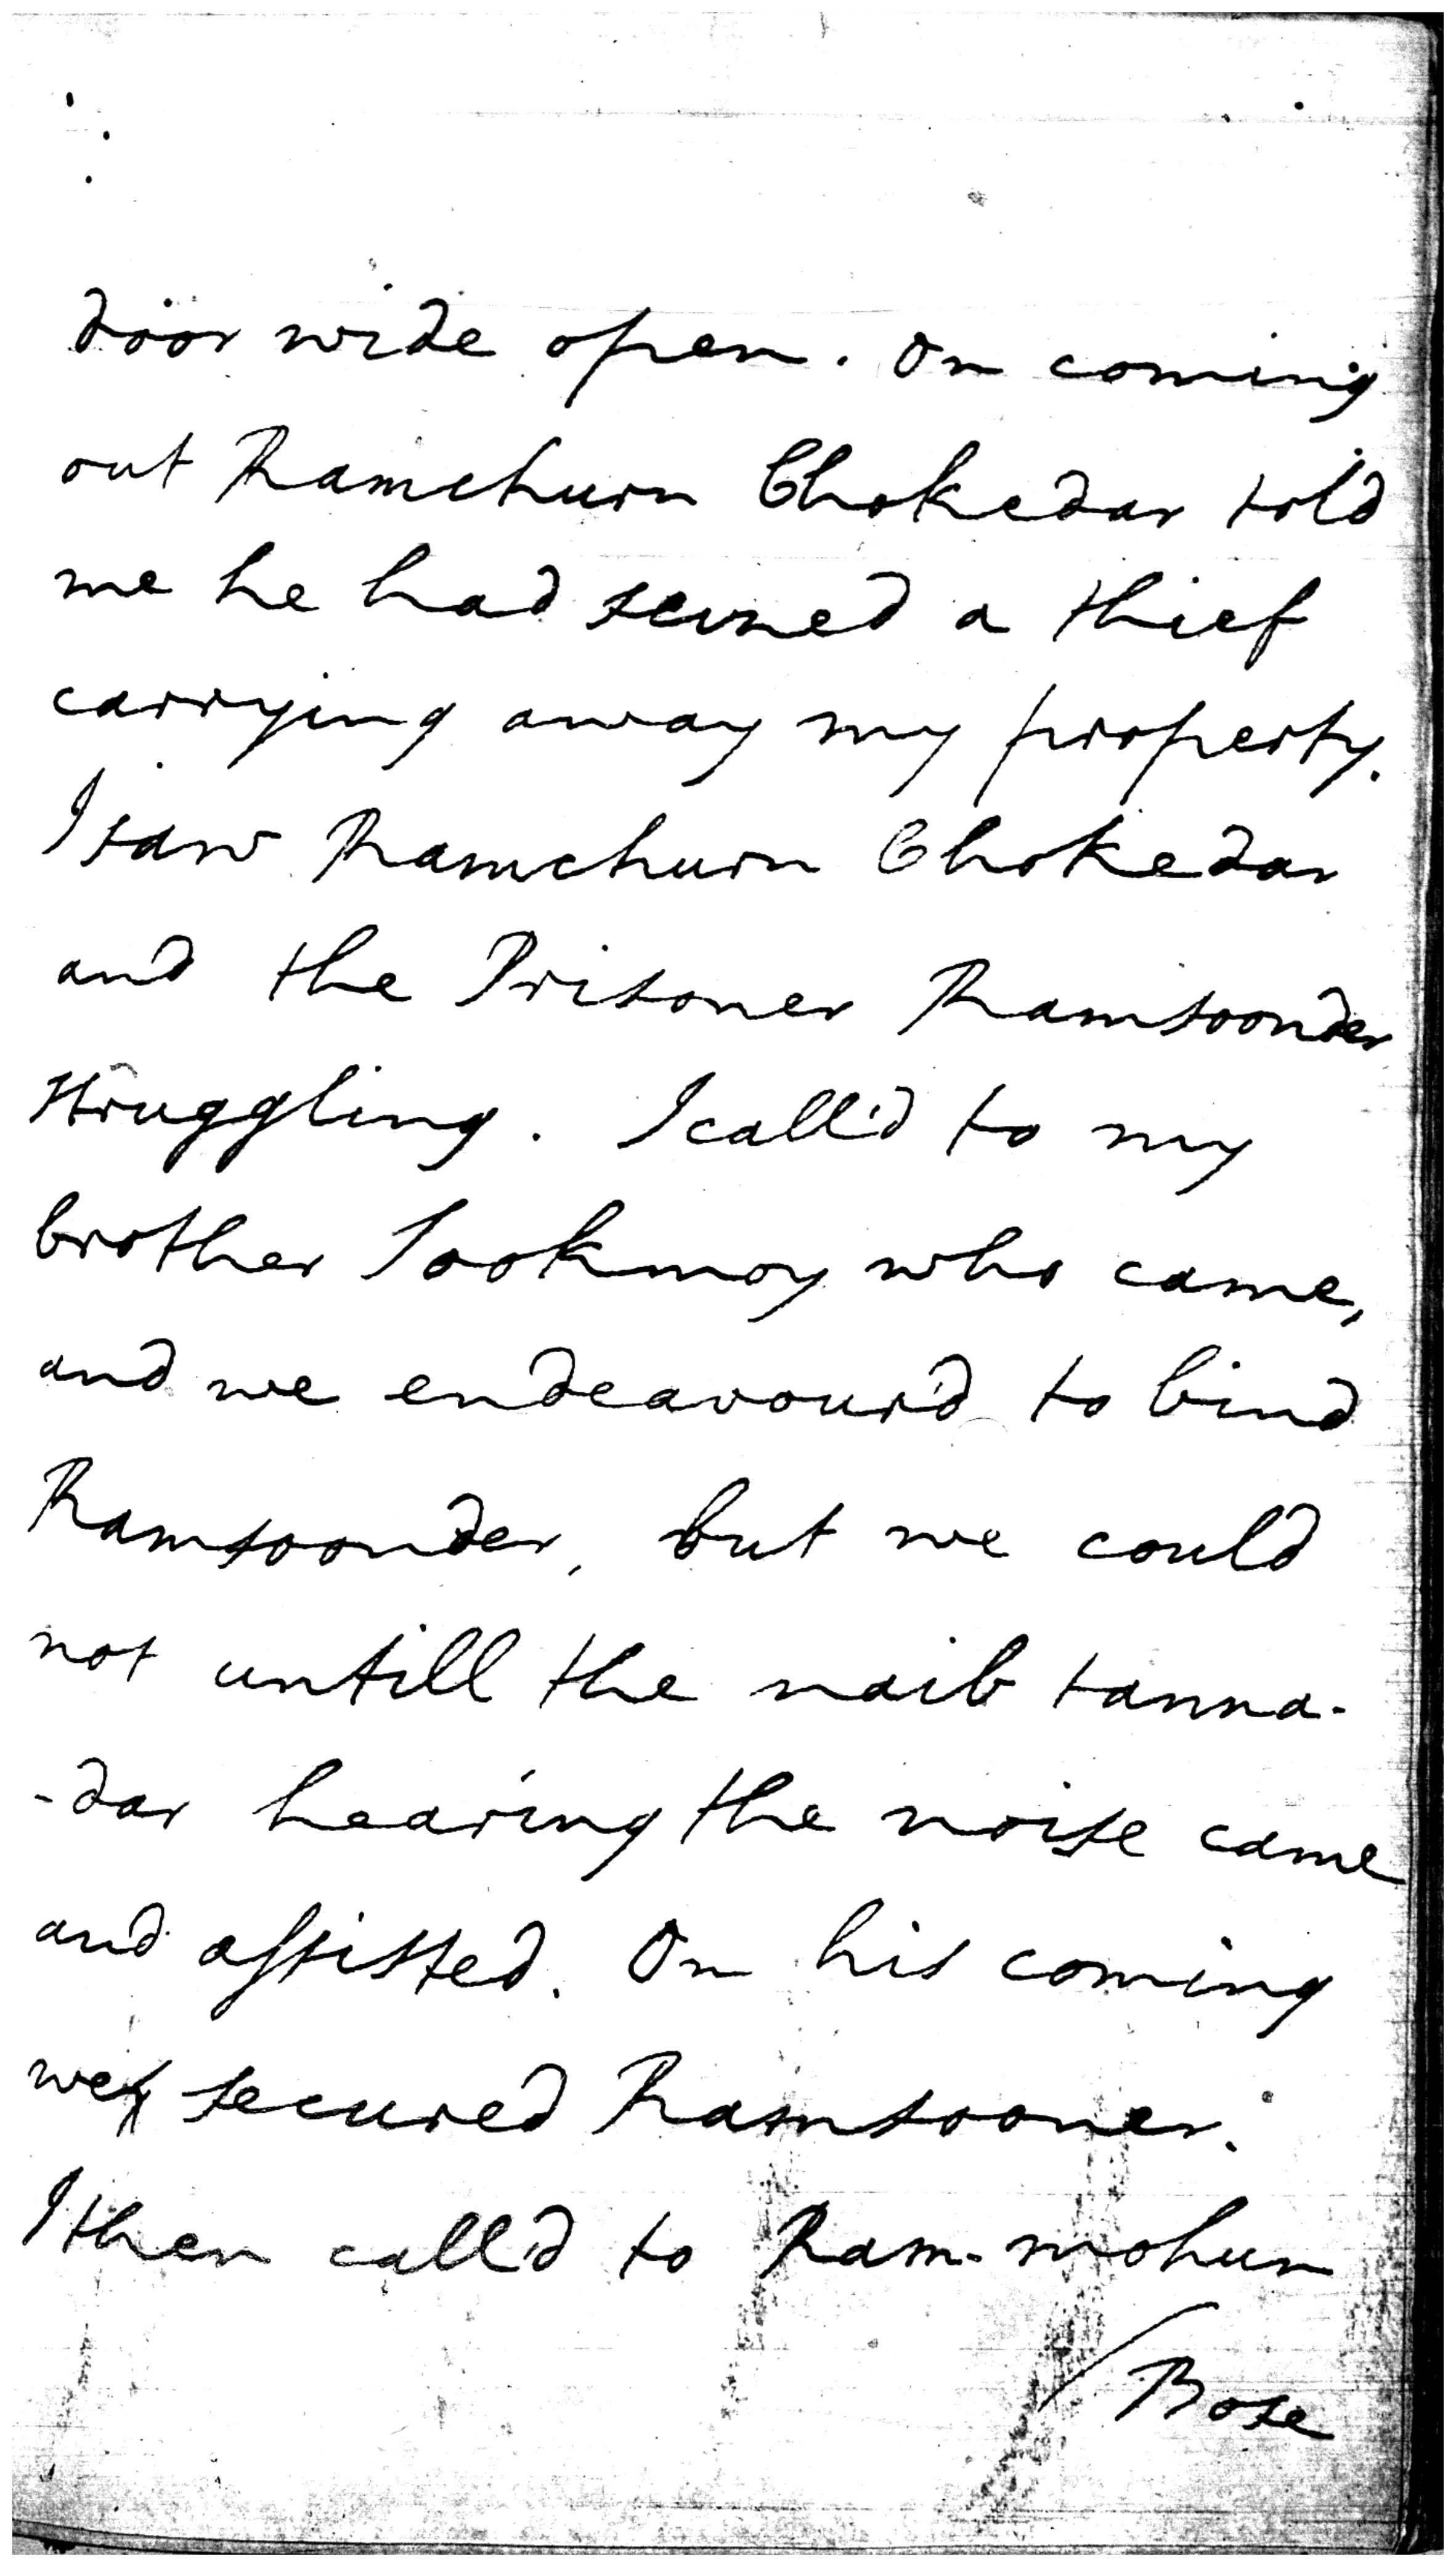 door wide open. On coming
out Ramchurn Chokedar told
me he had seized a thief
carrying away my property.
I saw Ramchurn Chokedar
and the Prisoner Ramsoonder
struggling. I call'd to my
brother Sookmoy who came,
and we endeavour'd to bind
Ramsoonder, but we could
not untill the naib tanna-
-dar hearing the noise came
and assisted. On his coming
we secured Ramsooner.
I then call'd to Ram-mohun
/Bose